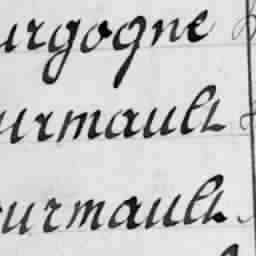 urgogne
urmault
ourmault